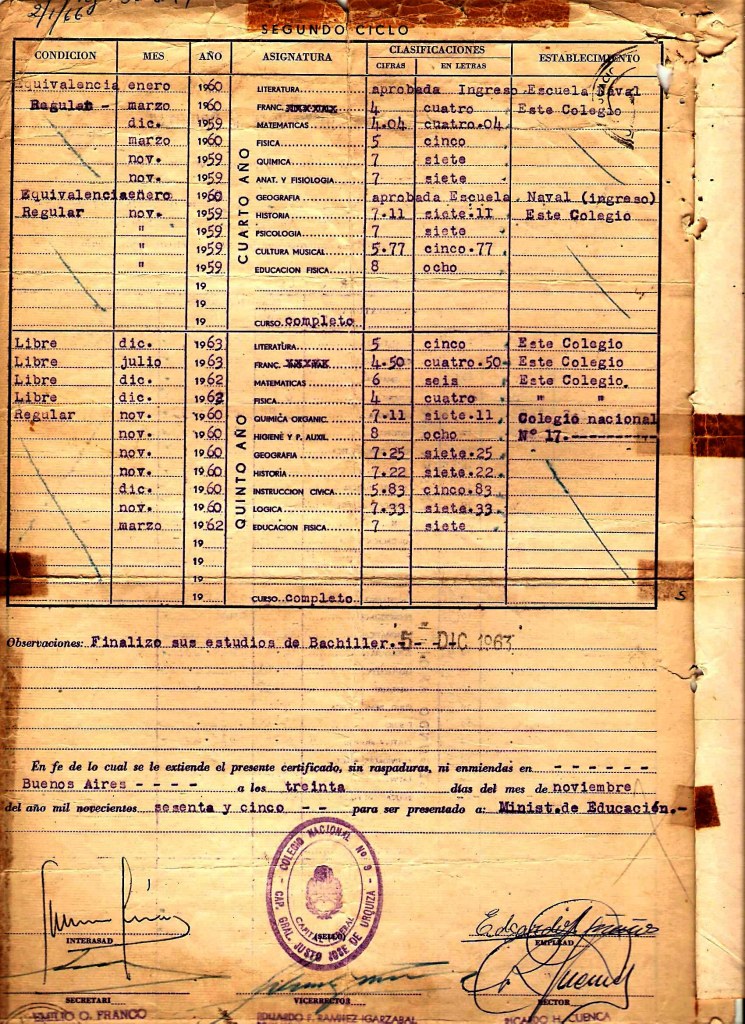 2/1/66
SEGUNDO CICLO
CONDICION MES AÑO ASIGNATURA CLASIFICACIONES ESTABLECIMIENTO
CIFRAS EN LETRAS
Equivalencia enero 1960 LITERATURA aprobada Ingreso Escuela Naval
Regular - marzo 1960 FRANC. 4 cuatro Este Colegio
dic. 1959 MATEMATICAS 4.04 cuatro.04
marzo 1960 FISICA 5 cinco
nov. 1959 QUIMICA 7 siete
nov. 1959 ANAT. Y FISIOLOGIA 7 siete
Equivalencia enero 1960 GEOGRAFIA aprobada Escuela Naval (ingreso)
Regular nov. 1959 HISTORIA 7.11 siete.11 Este Colegio
" 1959 PSICOLOGIA 7 siete
" 1959 CULTURA MUSICAL 5.77 cinco.77
" 1959 EDUCACION FISICA 8 ocho
19
19
CURSO completo
CUARTO AÑO
Libre dic. 1963 LITERATURA 5 cinco Este Colegio
Libre julio 1963 FRANC. 4.50 cuatro.50 Este Colegio
Libre dic. 1962 MATEMATICAS 6 seis Este Colegio.
Libre dic. 1962 FISICA 4 cuatro " "
Regular nov. 1960 QUIMICA ORGANIC. 7.11 siete.11 Colegio nacional
nov. 1960 HIGIENE Y P. AUXIL. 8 ocho Nº 17.----------
nov. 1960 GEOGRAFIA 7.25 siete.25
nov. 1960 HISTORIA 7.22 siete.22
dic. 1960 INSTRUCCION CIVICA 5.83 cinco.83
nov. 1960 LOGICA 7.33 siete.33
marzo 1962 EDUCACION FISICA 7 siete
19
19
19
19 CURSO completo
QUINTO AÑO
Observaciones: Finalizo sus estudios de Bachiller.- 5 - DIC 1963
En fe de lo cual se le extiende el presente certificado, sin raspaduras, ni enmiendas en - - - - - -
Buenos Aires - - - - a los treinta días del mes de noviembre
del año mil novecientos sesenta y cinco - - para ser presentado a: Minist.de Educación.-
COLEGIO NACIONAL No 9
CAP. GRAL. JUSTO JOSE DE URQUIZA
CAPITAL FEDERAL
(SELLO)
INTERASAD
EMPLEAD
SECRETARI
VICERRECTOR
RECTOR
EMILIO O. FRANCO
EDUARDO F. RAMIREZ IGARZABAL
RICARDO H. CUENCA